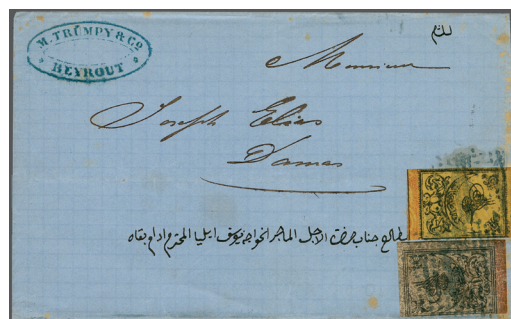 M. TRÜMPY & Co
BEYROUT
Monsieur
Joseph Elias
Damas
بطالع جناب حضرة الاجل الماجد الخواجه يوسف ايليا المحترم ادام بقاه